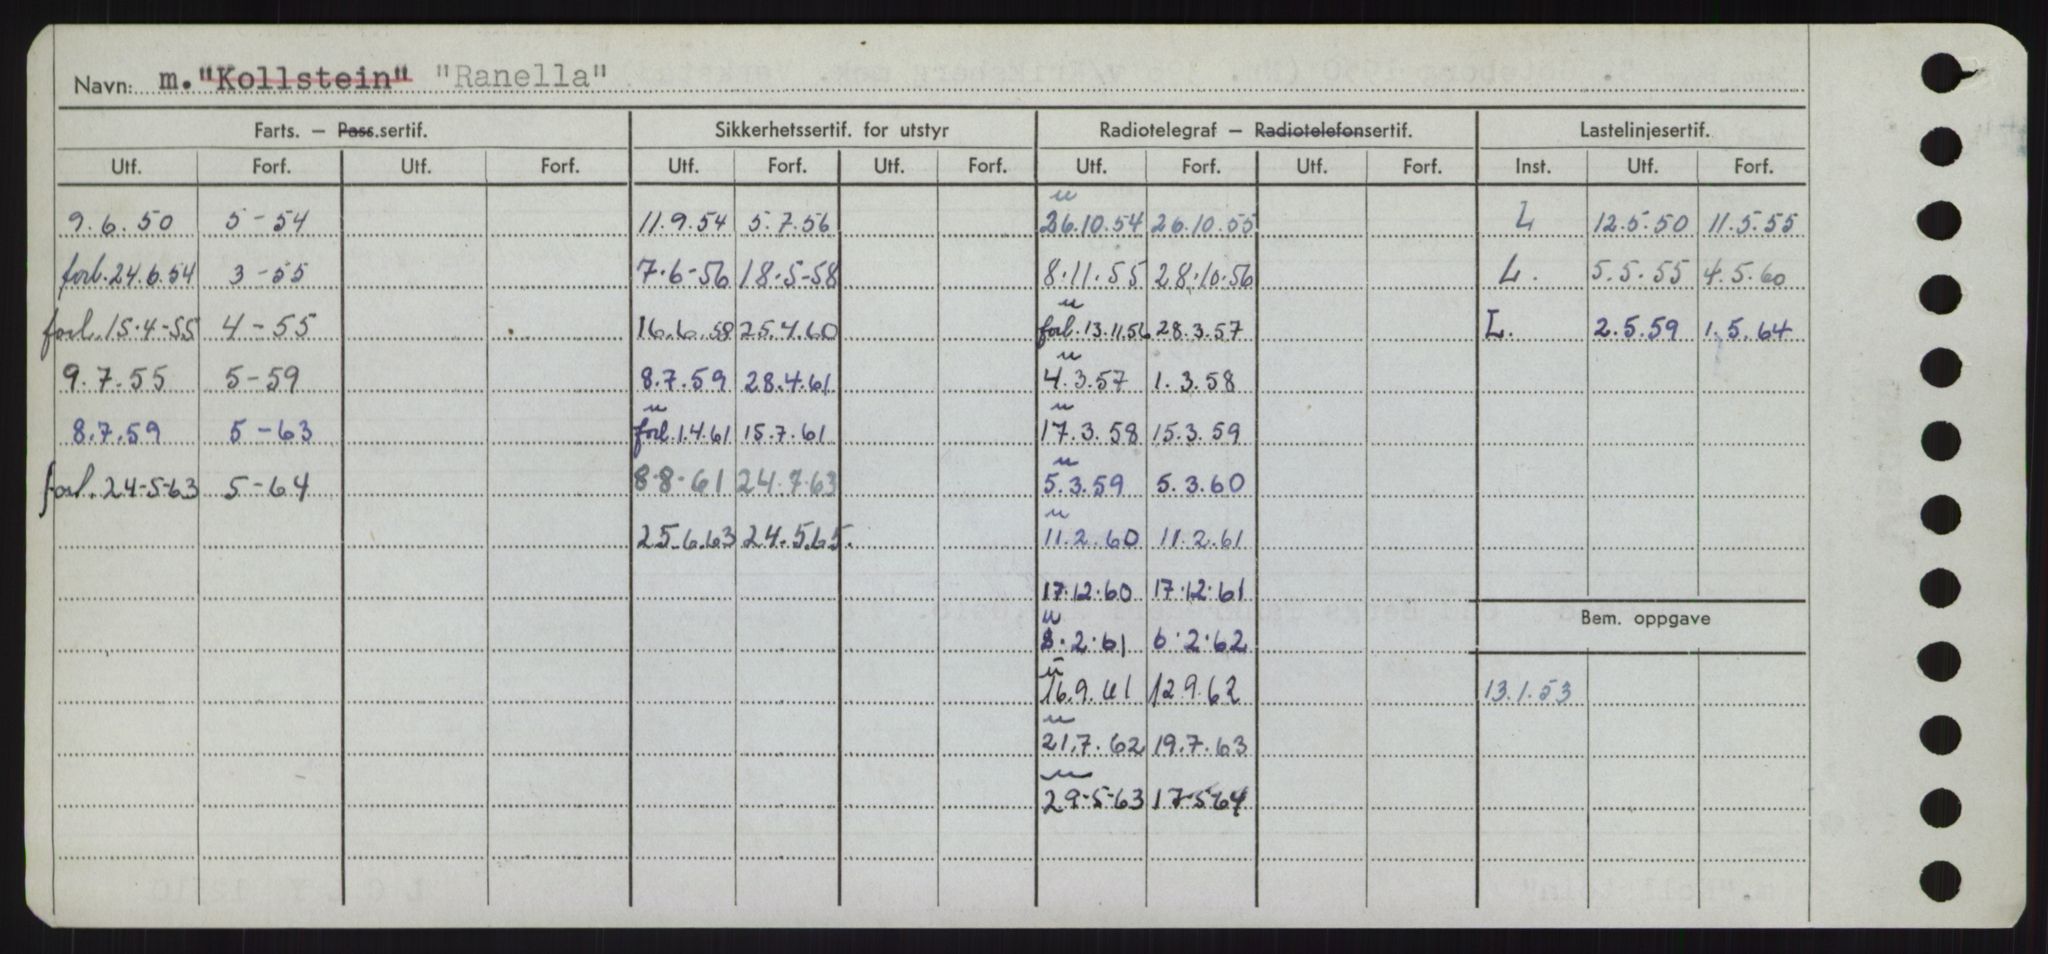 Navn: m. "Kollstein" "Ranella"
Farts. — Pass.sertif. Sikkerhetssertif. for utstyr Radiotelegraf — Radiotelefonsertif. Lastelinjesertif.
Utf. Forf. Utf. Forf. Utf. Forf. Utf. Forf. Utf. Forf. Utf. Forf. Inst. Utf. Forf.
u
9.6.50 5-54 11.9.54 5.7.56 26.10.54 26.10.55 L 12.5.50 11.5.55
forl. 24.6.54 3-55 7.6-56 18.5-58 8.11.55 28.10.56 L. 5.5.55 4.5.60
u
forl. 15.4-55 4-55 16.6.58 25.4.60 forl. 13.11.56 28.3.57 L. 2.5.59 1.5.64
u
9.7.55 5-59 8.7.59 28.4.61 4.3.57 1.3.58
u u
8.7.59 5-63 forl. 1.4.61 15.7.61 17.3.58 15.3.59
u
forl. 24-5-63 5-64 8-8-61 24.7.63 5.3.59 5.3.60
u
25.6.63 24.5.65. 11.2.60 11.2.61
17.12.60 17.12.61
Bem. oppgave
u
8.2.61 6.2.62
u
16.9.61 12.9.62 13.1.53
u
21.7.62 19.7.63
u
29-5-63 17-5-64